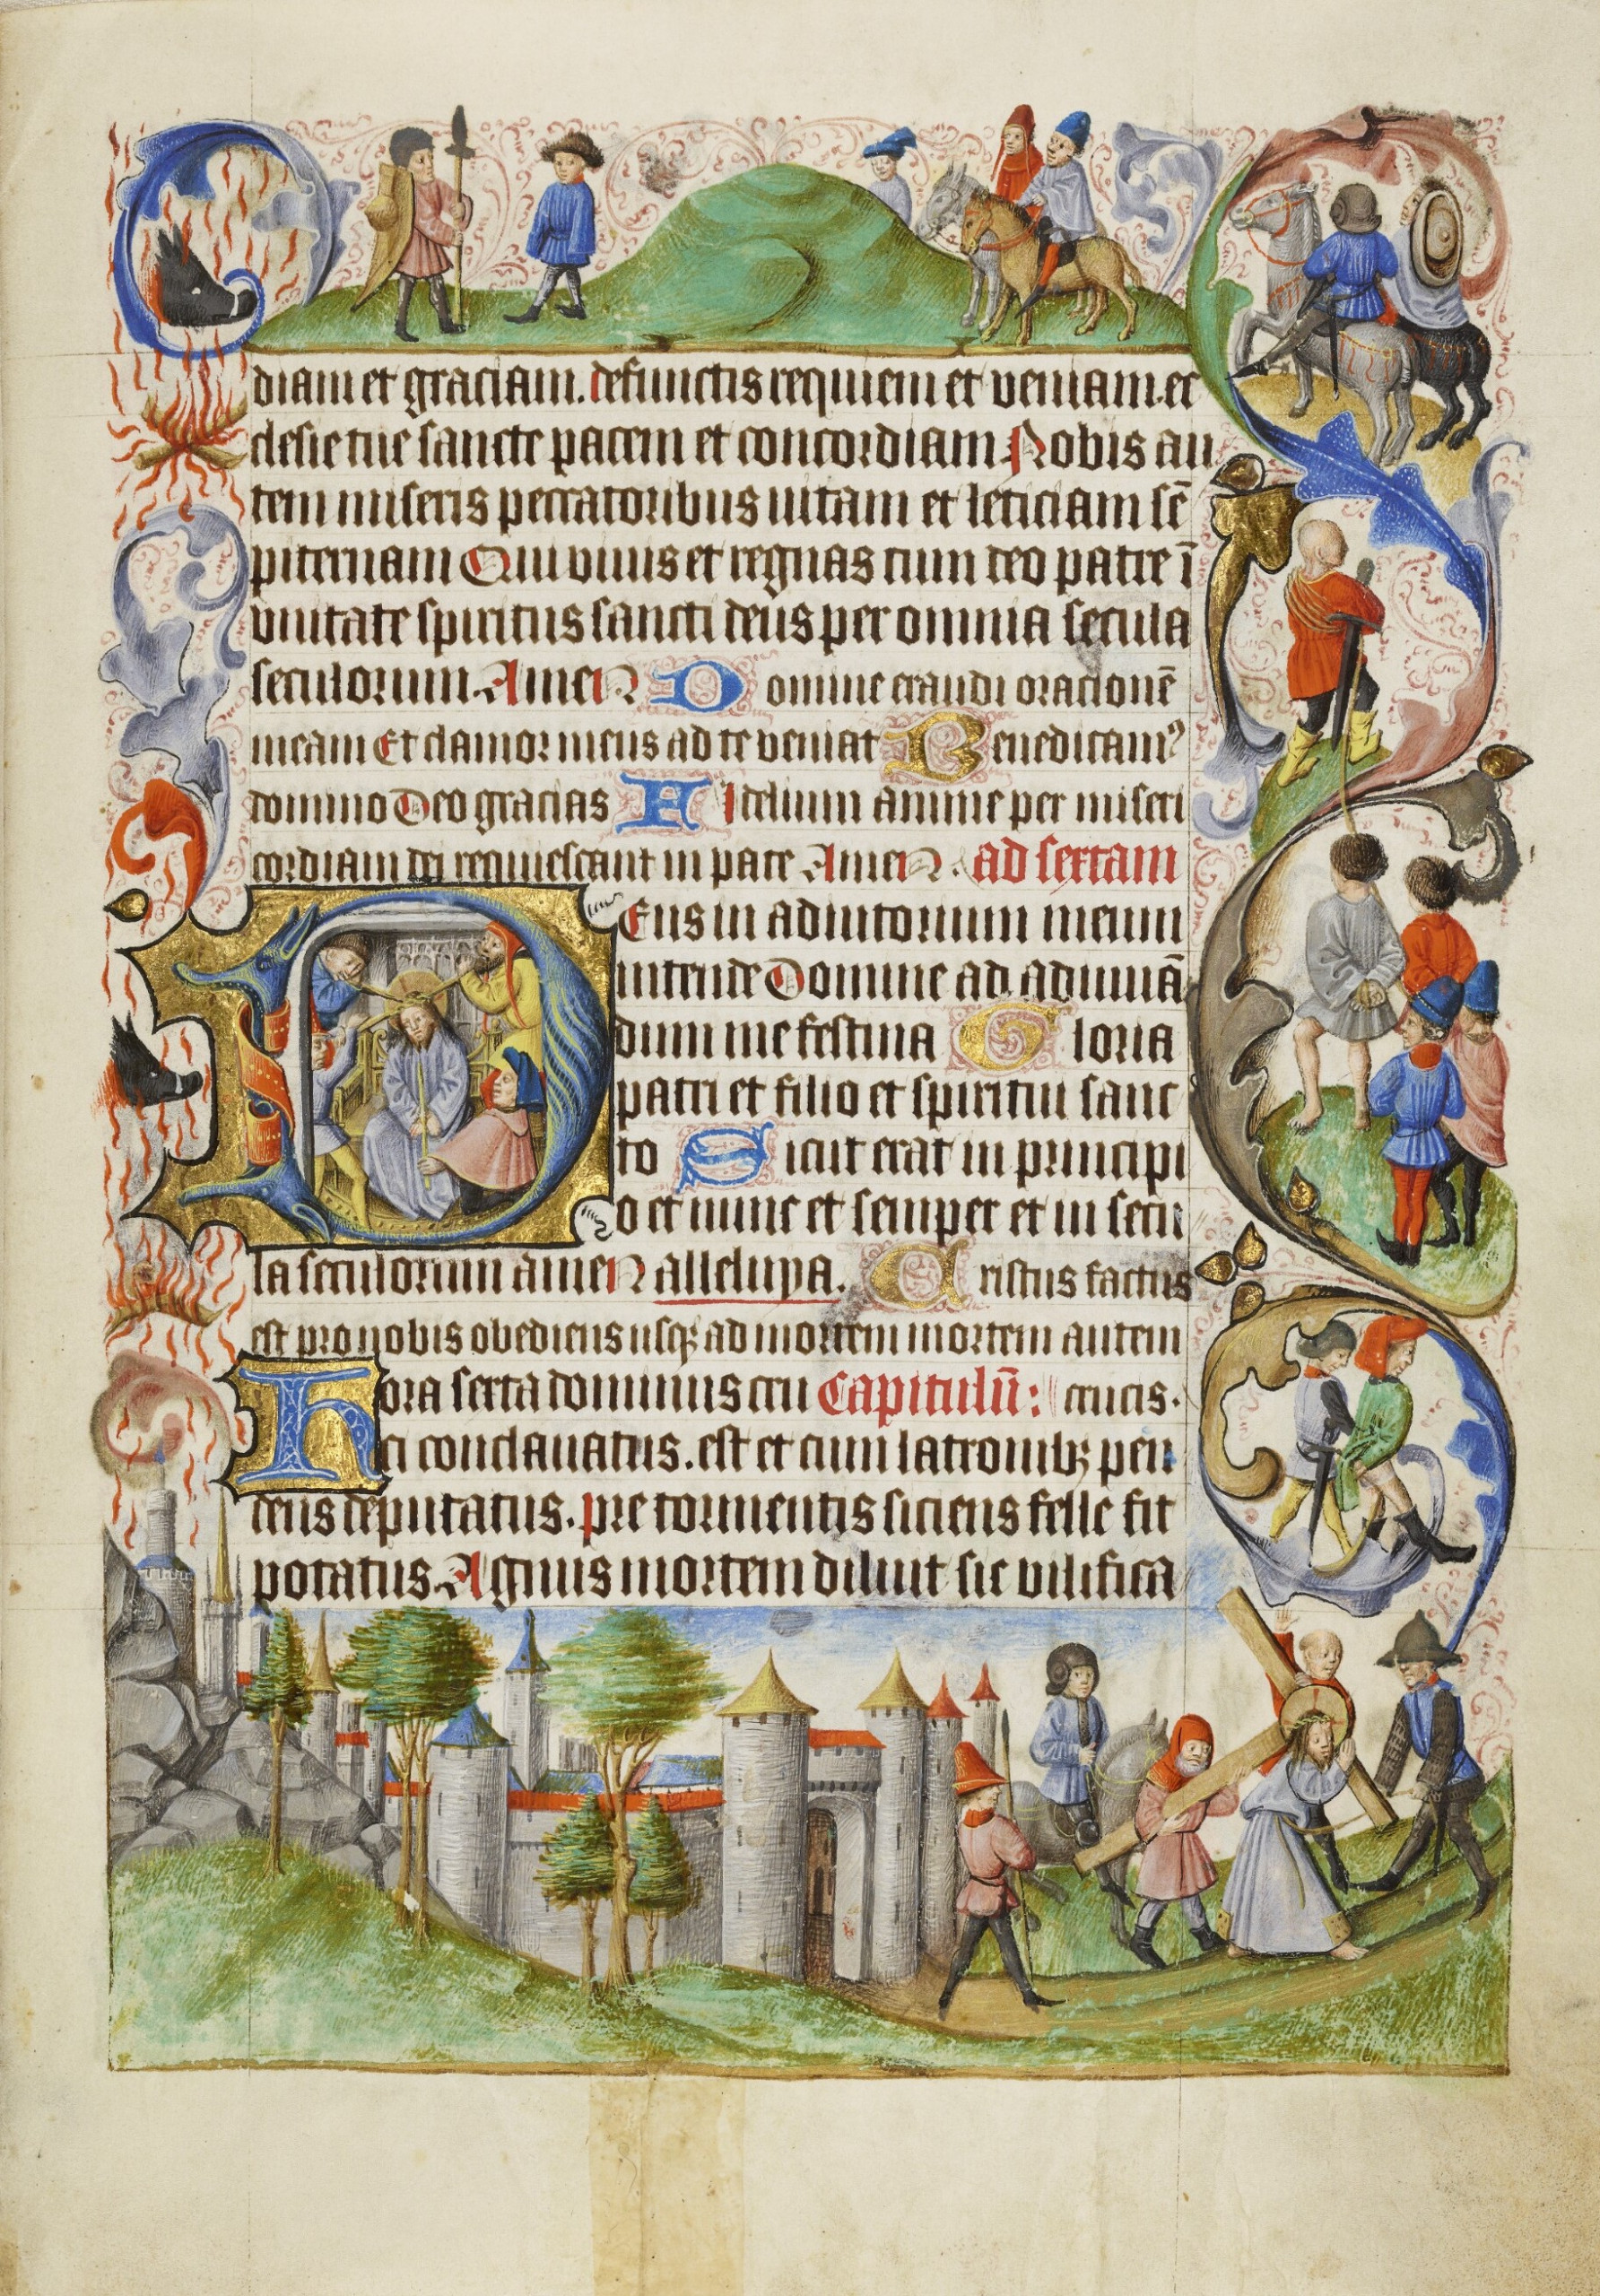 diam et graciam. defunctis requiem et veniam. ec
clesie tue sancte pacem et concordiam Nobis au
tem miseris peccatoribus uitam et leticiam sē
piternam Qui viuis et regnas cum deo patre ī
vnitate spiritus sancti deus per omnia secula
seculorum. Amen Domine exaudi orationē
meam Et clamor meus ad te veniat Benedicamꝰ
domino Deo gracias Fidelium anime per miseri
cordiam dei requiescant in pace Amen. ad sextam
Deus in adiutorium meum
intende Domine ad adiuuā
dum me festina Gloria
patri et filio et spiritui sanc
to Sicut erat in principi
o et nunc et semper et in secu
la seculorum amen alleluya. Cristus factus
est pro nobis obediens usqꝫ ad mortem mortem autem
Hora sexta dominus cru Capitulū: crucis.
ci conclauatus. est et cum latronibꝫ pen
dens deputatus. pre tormentis siciens felle fit
potatus. Agnus mortem diluit sic vilifica